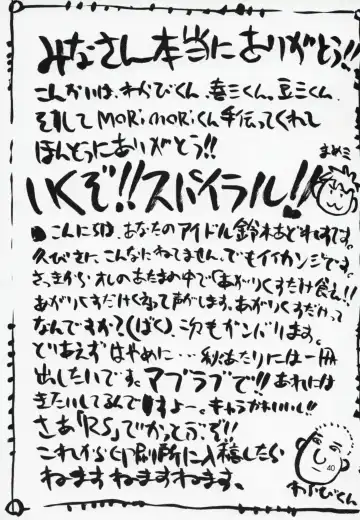 みなさん本当にありがとう!!
こんかいは、わらびくん、喜三くん、豆三くん、
そしてMORiMORiくん手伝ってくれて
ほんとうにありがとう!!
まめミ
いくぞ!!スパイラル!!
こんにちは、あなたのアイドル鈴木あどれすです。
久びさに、こんなにねてません。でもイイカンジです。
さっきから、オレのあたまの中で「あがりくすだけ食え!!
あがりくすだけくえ」って声がします。あがりくすだけって
なんですか?(ばく)、次もガンバります。
とりあえずはやめに…秋あたりには一冊
出したいです。マブラブで!!あれには
きたいしてるんですよー。キャラかわいいし!!
さあ「RS」でかってらぞ!!
これから印刷所に入稿したら
ねますねますねます。
40
わらびくん